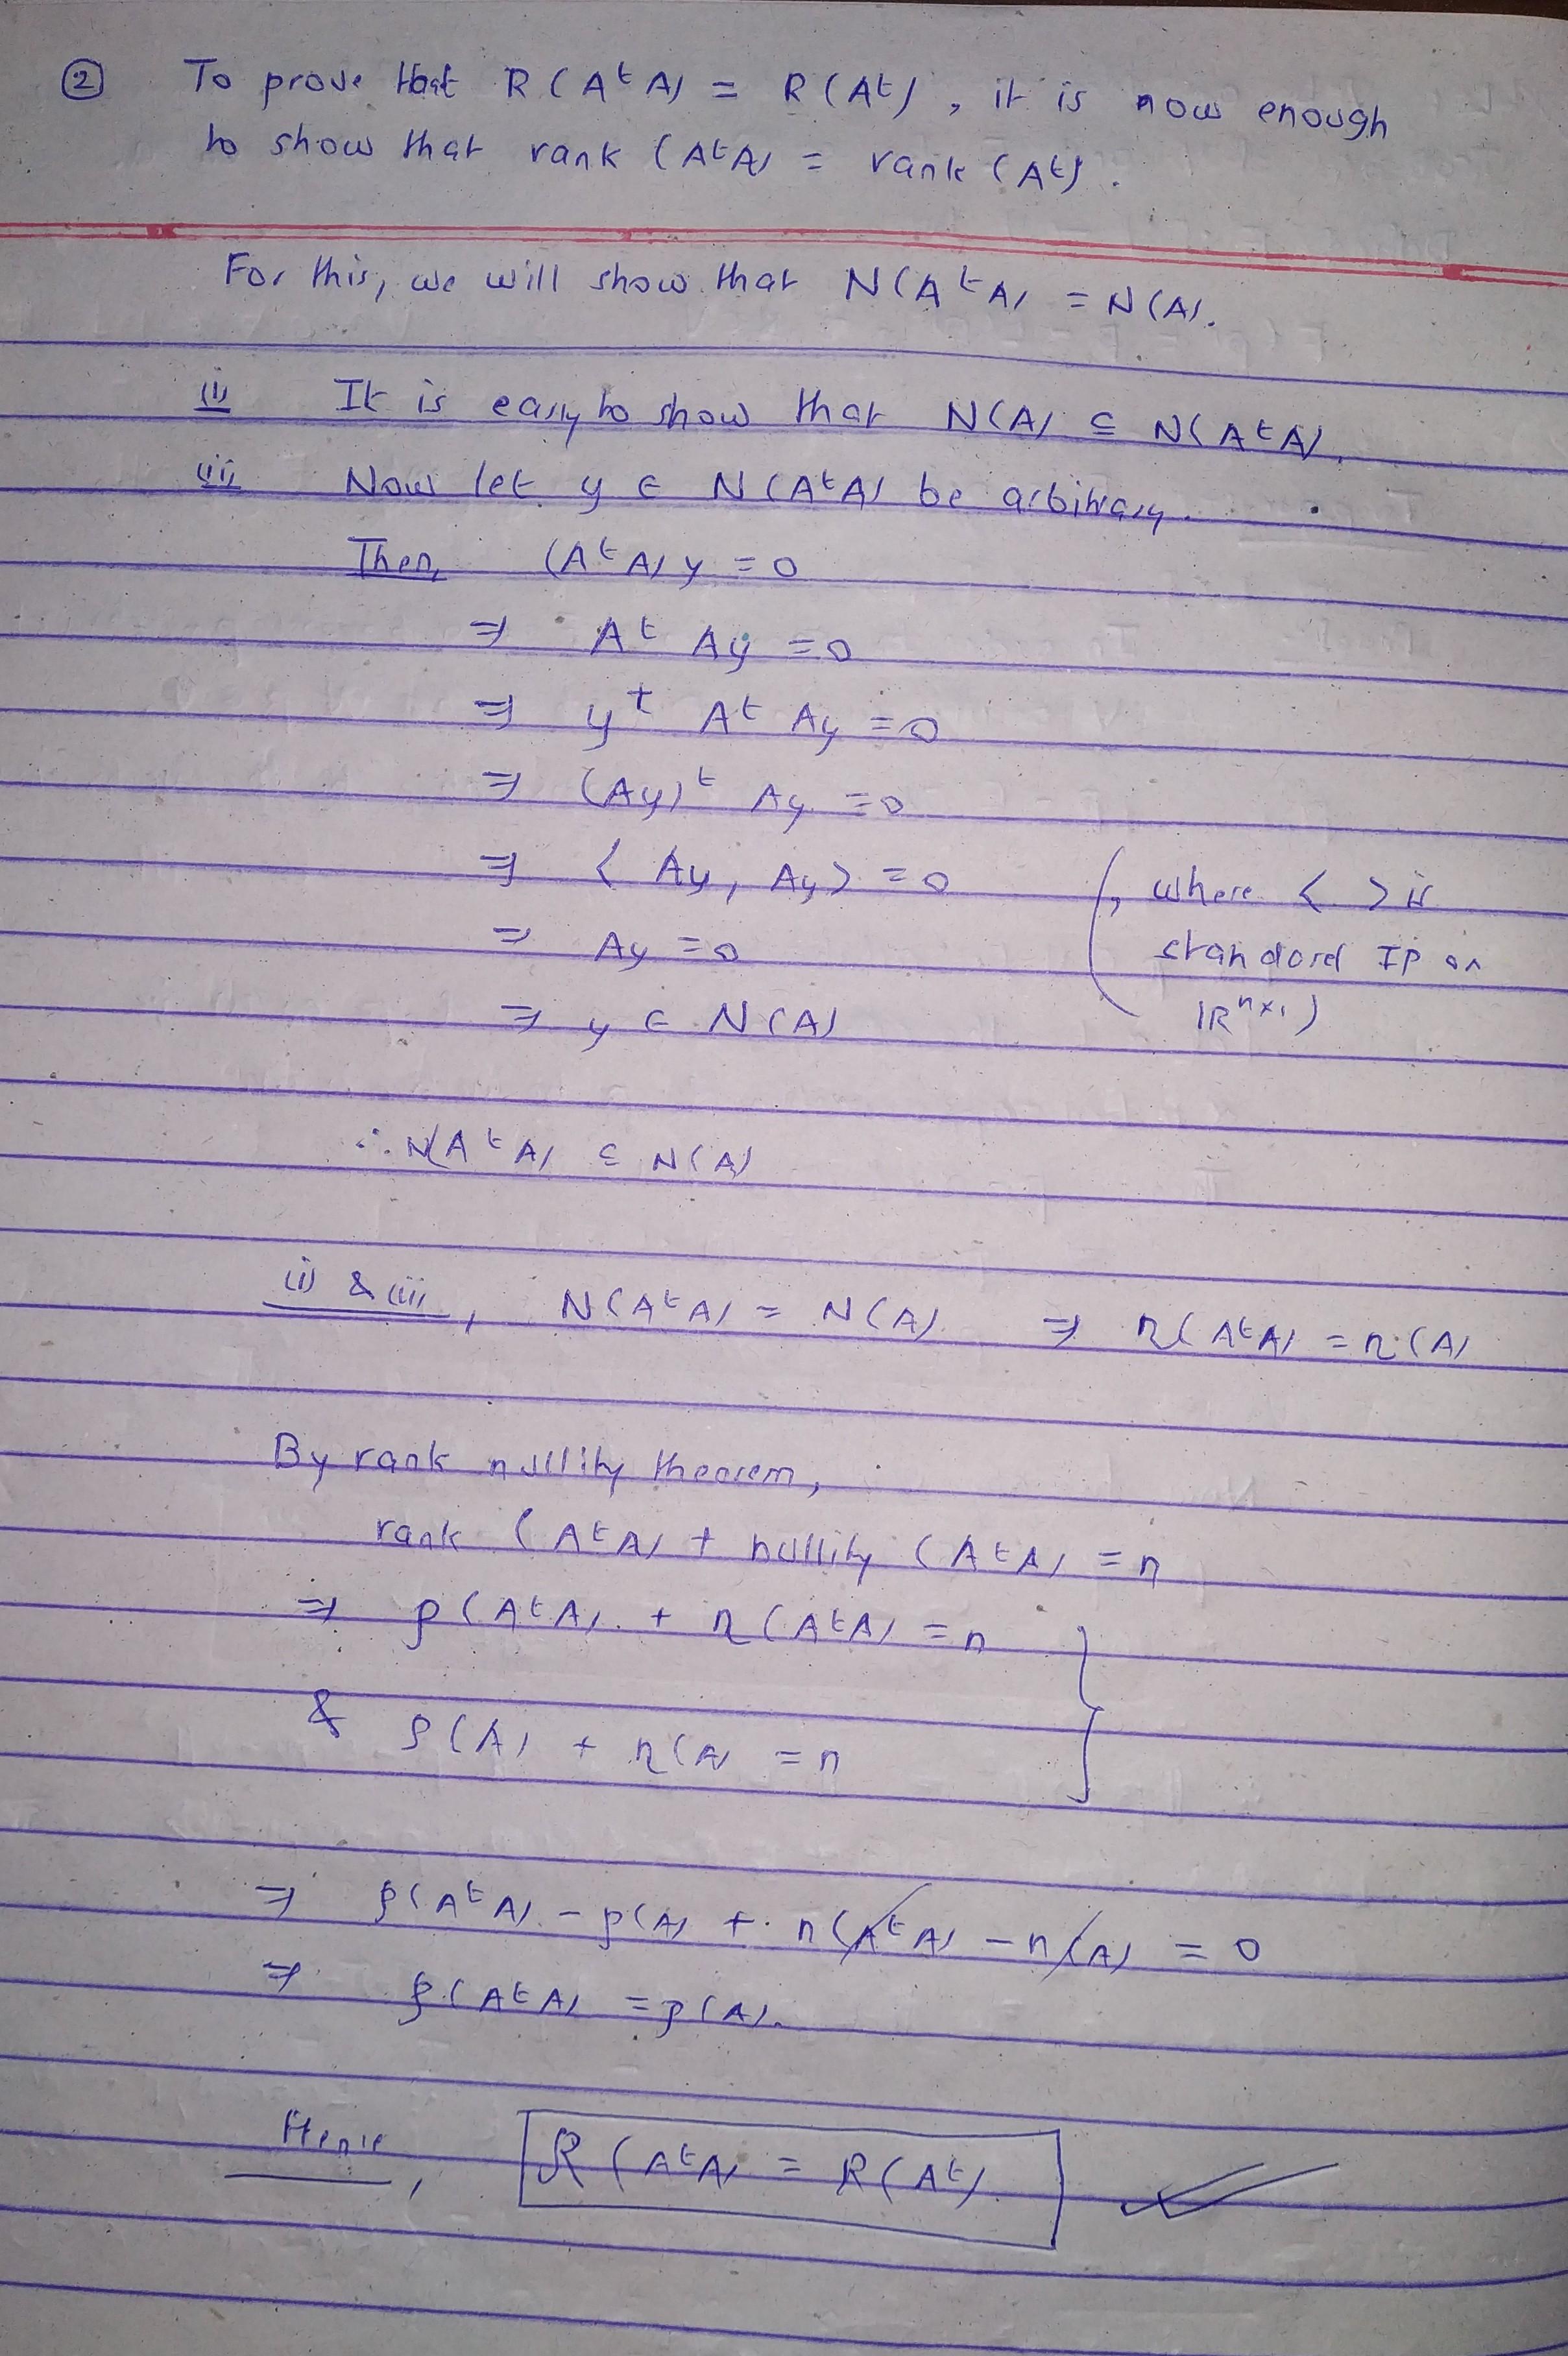 ② To prove that R(AᵗA) = R(Aᵗ), it is now enough
to show that rank (AᵗA) = rank (Aᵗ).
For this, we will show that N(AᵗA) = N(A).
(i) It is easy to show that N(A) ⊆ N(AᵗA).
(ii) Now let y ∈ N(AᵗA) be arbitrary.
Then, (AᵗA)y = 0
⇒ Aᵗ Ay = 0
⇒ yᵗ Aᵗ Ay = 0
⇒ (Ay)ᵗ Ay = 0
⇒ ⟨Ay, Ay⟩ = 0 (, where ⟨ ⟩ is
⇒ Ay = 0 standard IP on
⇒ y ∈ N(A) ℝⁿˣ¹)
∴ N(AᵗA) ⊆ N(A)
(i) & (ii), N(AᵗA) = N(A) ⇒ η(AᵗA) = η(A)
By rank nullity theorem,
rank (AᵗA) + nullity (AᵗA) = n
⇒ ρ(AᵗA) + η(AᵗA) = n }
& ρ(A) + η(A) = n
⇒ ρ(AᵗA) - ρ(A) + n(AᵗA) - n(A) = 0
⇒ ρ(AᵗA) = ρ(A).
Hence, R(AᵗA) = R(Aᵗ).